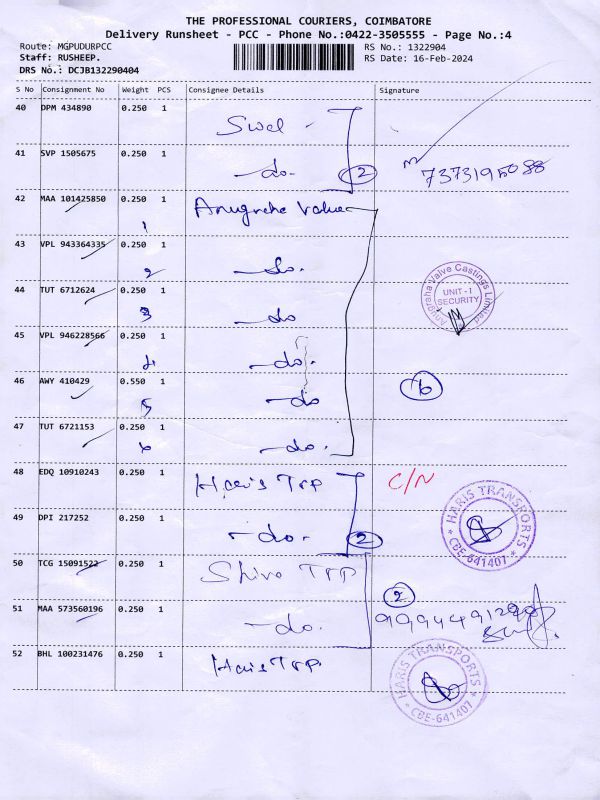 THE PROFESSIONAL COURIERS, COIMBATORE
Delivery Runsheet - PCC - Phone No.:0422-3505555 - Page No.:4
Route: MGPUDURPCC
RS No.: 1322904
Staff: RUSHEEP.
RS Date: 16-Feb-2024
DRS No.: DCJB132290404
S No Consignment No Weight PCS Consignee Details Signature
40 DPM 434890 0.250 1
41 SVP 1505675 0.250 1 -do- 2 7373195088
42 MAA 101425850 0.250 1 Anugraha Valve
1
43 VPL 943364335 0.250 1 -do.
2
44 TUT 6712624 0.250 1 -do
3
Anugraha Valve Castings Limited
UNIT-I
SECURITY
45 VPL 946228566 0.250 1 -do.
4
46 AWY 410429 0.550 1 -do 6
5
47 TUT 6721153 0.250 1 -do.
6
48 EDQ 10910243 0.250 1 Haris Trp C/N
49 DPI 217252 0.250 1 -do. 2
* HARIS TRANSPORTS *
CBE-641407
50 TCG 15091522 0.250 1 Shiva Trp 2
51 MAA 573560196 0.250 1 -do.
52 BHL 100231476 0.250 1 Haris Trp.
* HARIS TRANSPORTS *
CBE-641407